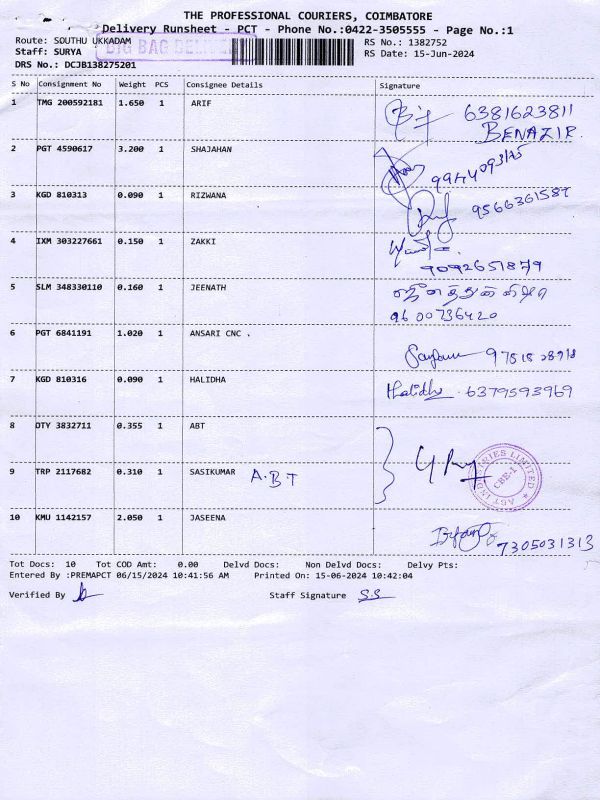 THE PROFESSIONAL COURIERS, COIMBATORE
Delivery Runsheet - PCT - Phone No.:0422-3505555 - Page No.:1
Route: SOUTHU UKKADAM BIG BAG DELIVERY RS No.: 1382752
Staff: SURYA RS Date: 15-Jun-2024
DRS No.: DCJB138275201
S No Consignment No Weight PCS Consignee Details Signature
1 TMG 200592181 1.650 1 ARIF 6381623811
BENAZIR.
2 PGT 4590617 3.200 1 SHAJAHAN
3 KGD 810313 0.090 1 RIZWANA 9566361587
4 IXM 303227661 0.150 1 ZAKKI
9092651879
5 SLM 348330110 0.160 1 JEENATH
9600736420
6 PGT 6841191 1.020 1 ANSARI CNC .
7 KGD 810316 0.090 1 HALIDHA Halidha 6379593969
8 OTY 3832711 0.355 1 ABT
9 TRP 2117682 0.310 1 SASIKUMAR A.B.T ABT INDUSTRIES LIMITED CBE-1
10 KMU 1142157 2.050 1 JASEENA
7305031313
Tot Docs: 10 Tot COD Amt: 0.00 Delvd Docs: Non Delvd Docs: Delvy Pts:
Entered By :PREMAPCT 06/15/2024 10:41:56 AM Printed On: 15-06-2024 10:42:04
Verified By Staff Signature S.S